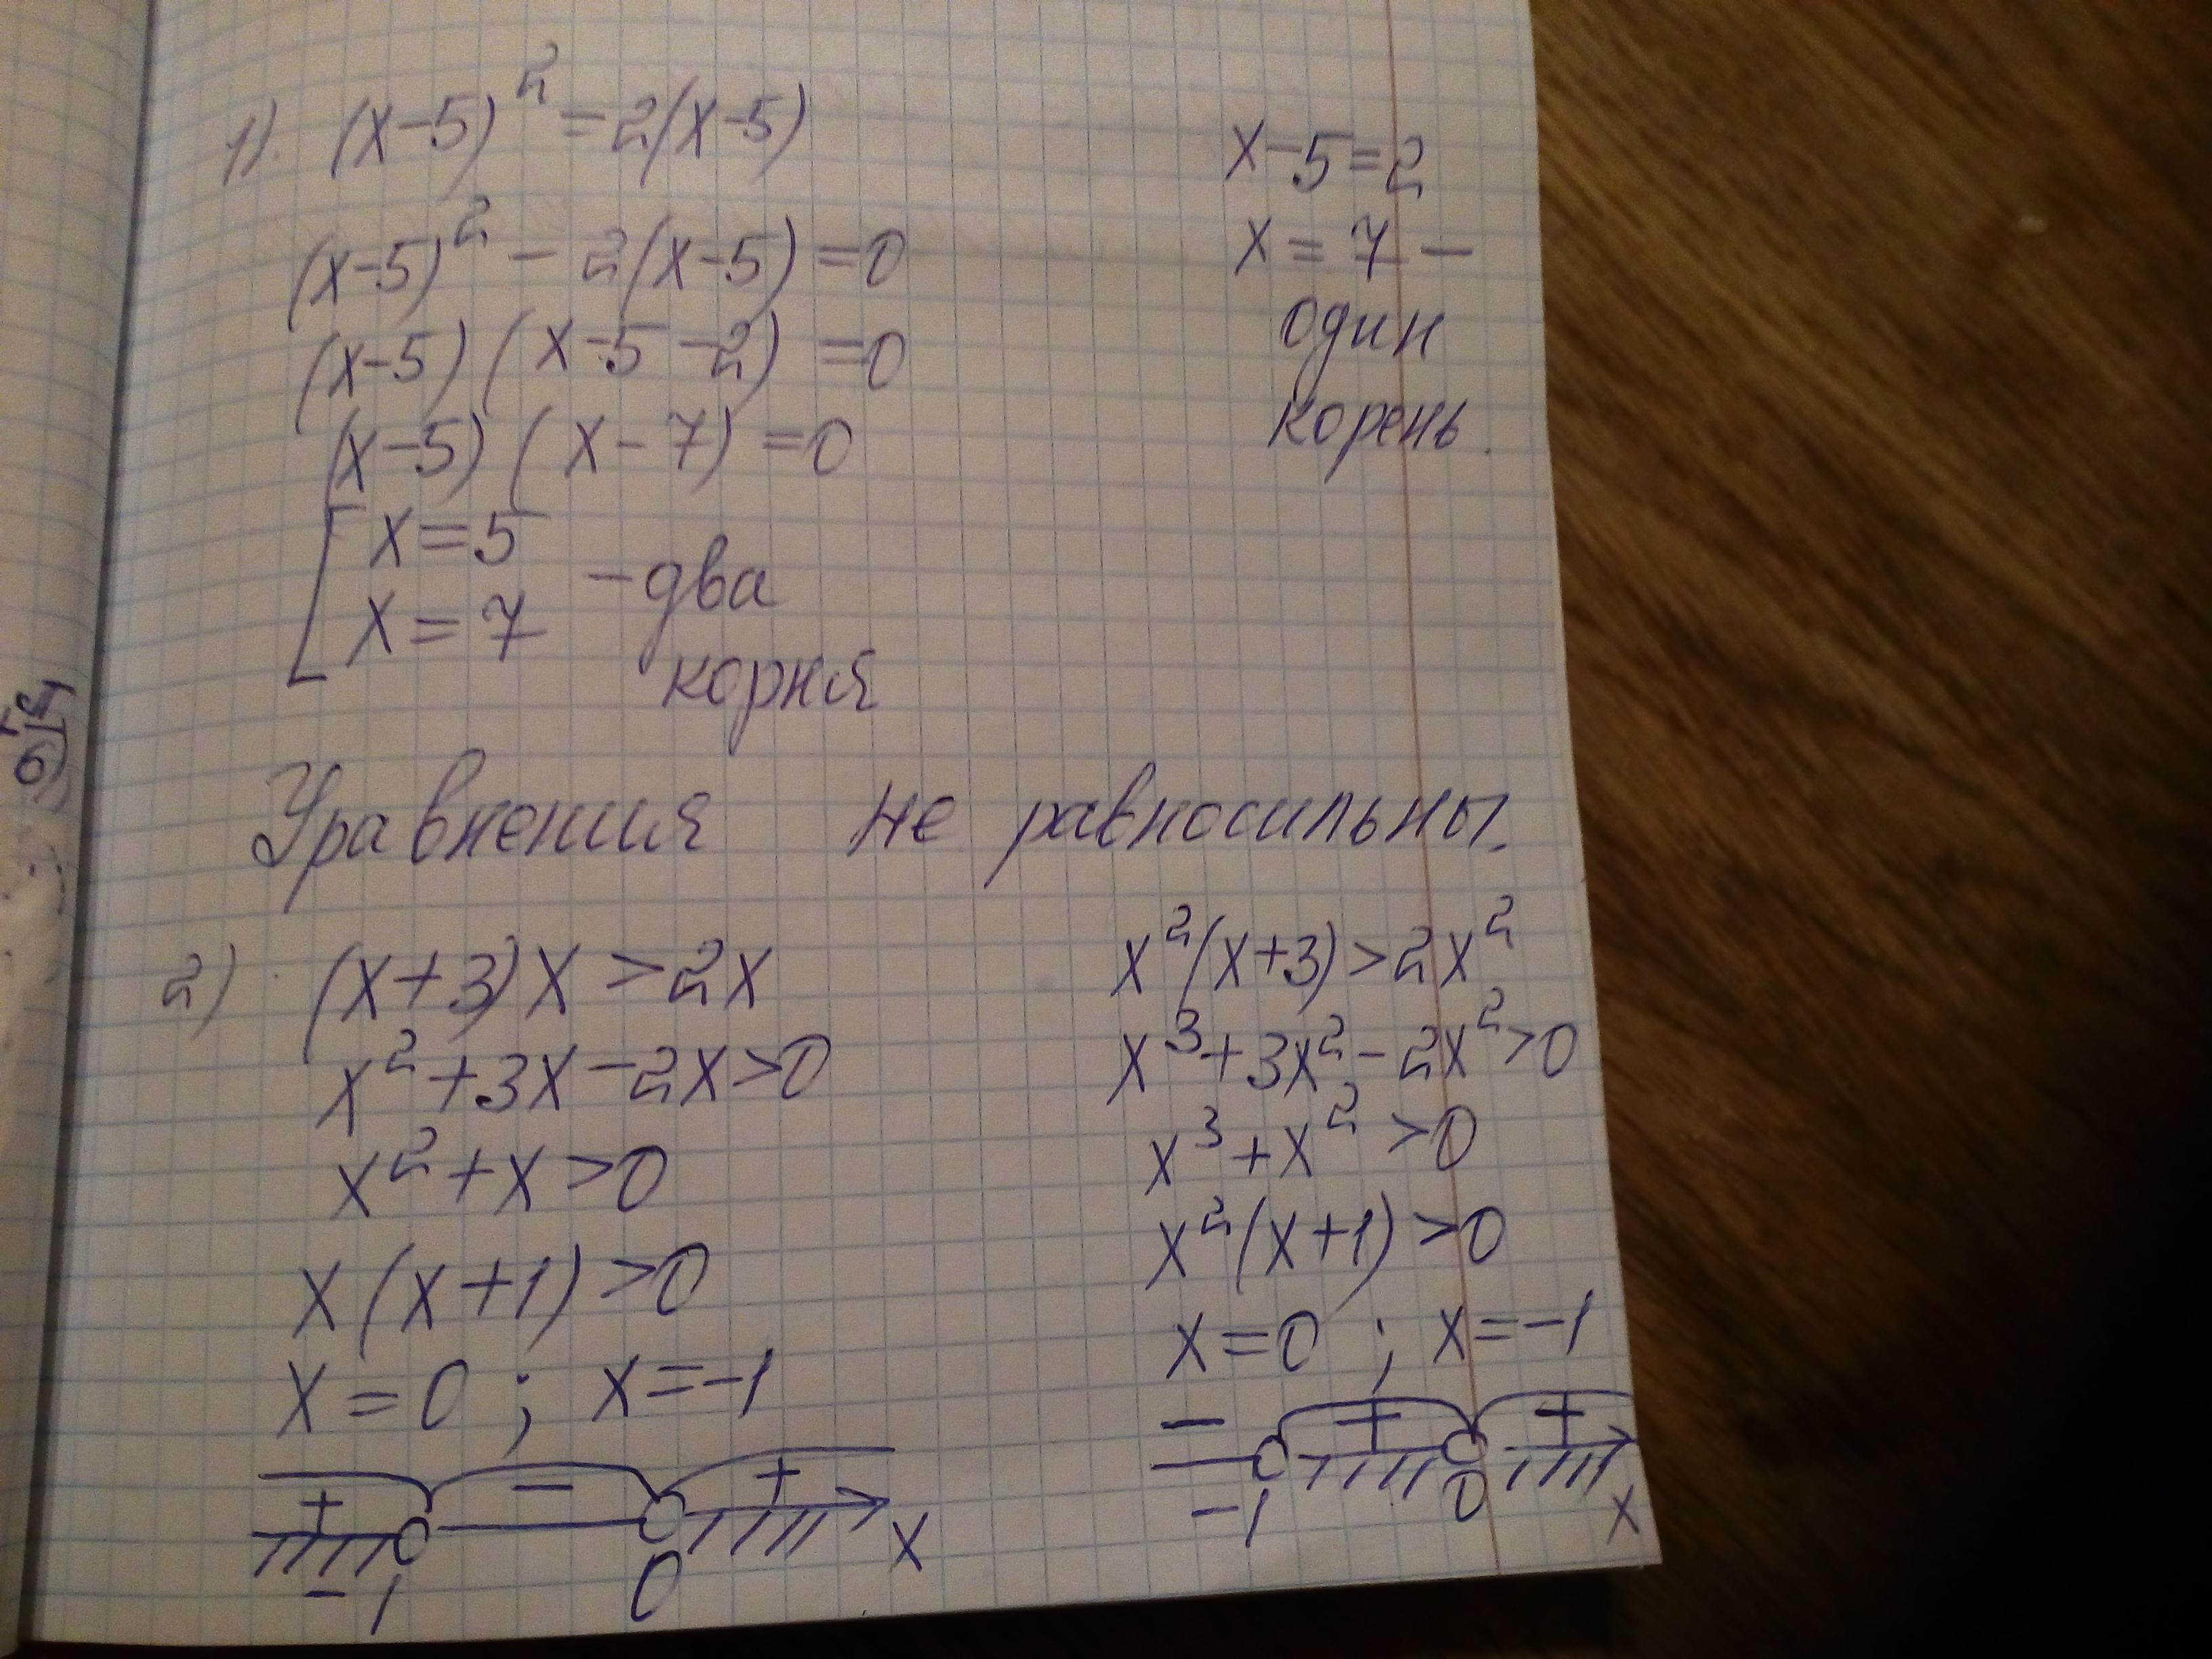 1). (x-5)² = 2(x-5)
(x-5)² - 2(x-5) = 0
(x-5)(x-5-2) = 0
(x-5)(x-7) = 0
[ x = 5
x = 7 - два
корня
x-5=2
x = 7 -
один
корень.
Уравнения не равносильны.
2) (x+3)x > 2x
x² + 3x - 2x > 0
x² + x > 0
x(x+1) > 0
x = 0 ; x = -1
+ - +
-1 0 x
x²(x+3) > 2x²
x³ + 3x² - 2x² > 0
x³ + x² > 0
x²(x+1) > 0
x = 0 ; x = -1
- + +
-1 0 x